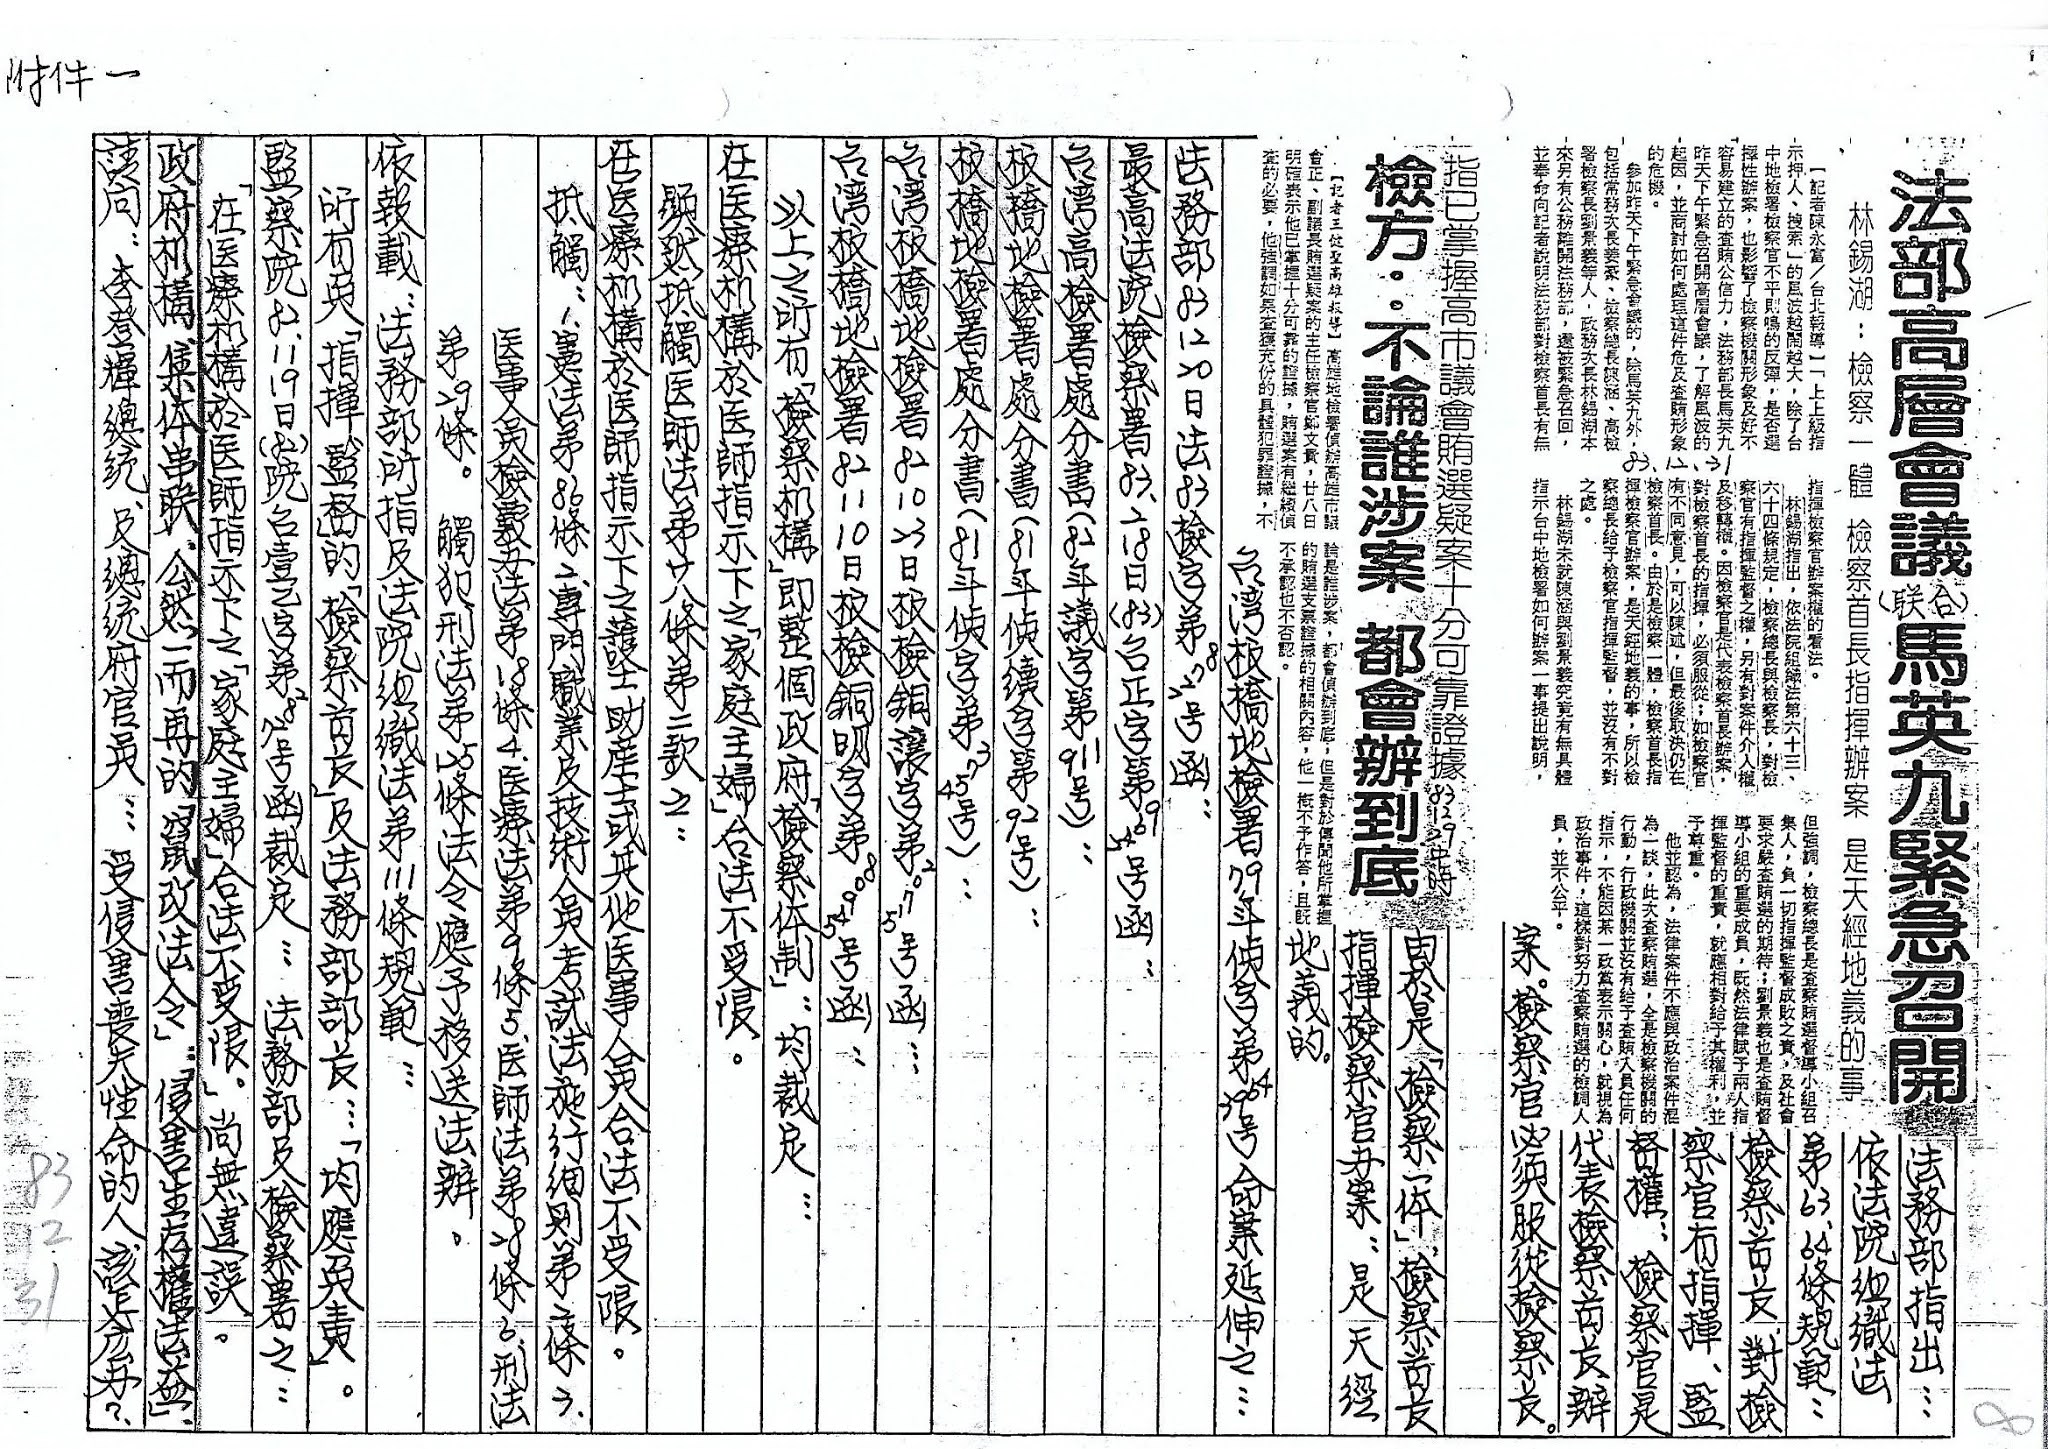 附件一
法部高層會議(联合)馬英九緊急召開
林錫湖：檢察一體 檢察首長指揮辦案 是天經地義的事
【記者陳永富／台北報導】「上上級指
示押人、搜索」的風波越鬧越大，除了台
中地檢署檢察官不平則鳴的反彈，是否選
擇性辦案，也影響了檢察機關形象及好不
容易建立的查賄公信力，法務部長馬英九
昨天下午緊急召開高層會議，了解風波的
起因，並商討如何處理這件危及查賄形象
的危機。
參加昨天下午緊急會議的，除馬英九外，
包括常務次長姜豪、檢察總長陳涵、高檢
署檢察長劉景義等人，政務次長林錫湖本
來另有公務離開法務部，還被緊急召回，
並奉命向記者說明法務部對檢察首長有無
83.12.31
指揮檢察官辦案權的看法。
林錫湖指出，依法院組織法第六十三、
六十四條規定，檢察總長與檢察長，對檢
察官有指揮監督之權，另有對案件介入權
及移轉權。因檢察官是代表檢察首長辦案，
對檢察首長的指揮，必須服從；如檢察官
有不同意見，可以陳述，但最後取決仍在
檢察首長。由於是檢察一體，檢察首長指
揮檢察官辦案，是天經地義的事，所以檢
察總長給予檢察官指揮監督，並沒有不對
之處。
林錫湖未就陳涵與劉景義究竟有無具體
指示台中地檢署如何辦案一事提出說明，
但強調，檢察總長是查察賄選督導小組召
集人，負一切指揮監督成敗之責，及社會
要求嚴查賄選的期待；劉景義也是查賄督
導小組的重要成員，既然法律賦予兩人指
揮監督的重責，就應相對給予其權利，並
予尊重。
他並認為，法律案件不應與政治案件混
為一談，此次查察賄選，全是檢察機關的
行動，行政機關並沒有給予查賄人員任何
指示，不能因某一政黨表示關心，就視為
政治事件，這樣對努力查察賄選的檢調人
員，並不公平。
法務部指出…
依法院組織法
第63.64條規範…
檢察首長對檢
察官有指揮、監
督權、檢察官是
代表檢察首長辦
案。檢察官必須服從檢察長。
指已掌握高市議會賄選疑案十分可靠證據
83.12.29中時
檢方：不論誰涉案 都會辦到底
【記者王從聖高雄報導】高雄地檢署偵辦高雄市議
會正、副議長賄選疑案的主任檢察官鄭文貴，廿八日
明確表示他已掌握十分可靠的證據，賄選案有繼續偵
查的必要，他強調如果查獲充份的具體犯罪證據，不
論是誰涉案，都會偵辦到底，但是對於傳聞他所掌握
的賄選支票證據的相關內容，他一概不予作答，且既
不承認也不否認。
由於是「檢察一体」、檢察首長
指揮檢察官办案：是天經
地義的。
台湾板橋地檢署79年偵字第3964号命案延伸之…
法務部83 12 20日法83檢字第27278号函：
最高法院檢察署83.2.18日(83)名正字第5469号函：
台湾高檢署處分書(82年議字第911号)：
板橋地檢署處分書(81年偵續字第92号)：
板橋地檢署處分書(81年偵字第4573号)：
台湾板橋地檢署82 10 23日板檢銅讓字第51702号函：
台湾板橋地檢署82 11 10日板檢銅明字第54908号函：
以上之所有「檢察机構」即整個政府「檢察体制」：均裁定…
在医療机構於医師指示下之「家庭主婦」合法不受限。
顯然抵觸医師法第廿八條第二款之：
在医療机構於医師指示下之護士助產士或其他医事人員合法不受限。
抵觸：1.憲法第86條2.專門職業及技術人員考試法施行細則第二條3.
医事人員檢覈办法第18條4.医療法第9條5.医師法第28條6.刑法
第29條。觸犯刑法第125條法令應予移送法辦。
依報載：法務部所指及法院組織法第111條規範…
所有負「指揮、監督」的「檢察首長」及法務部部長…「均應負責」。
監察院82.11.19日(82)院台壹乙字第8272号函裁定…法務部及檢察署之…
「在医療机構於医師指示下之「家庭主婦」合法不受限。」尚無違誤。
政府机構、集体串联、公然一而再的「竄改法令」：「侵害生存權法益」、
請问：李登輝總統、及總統府官員…受侵害喪失性命的人該怎広办？
83
12
31
8